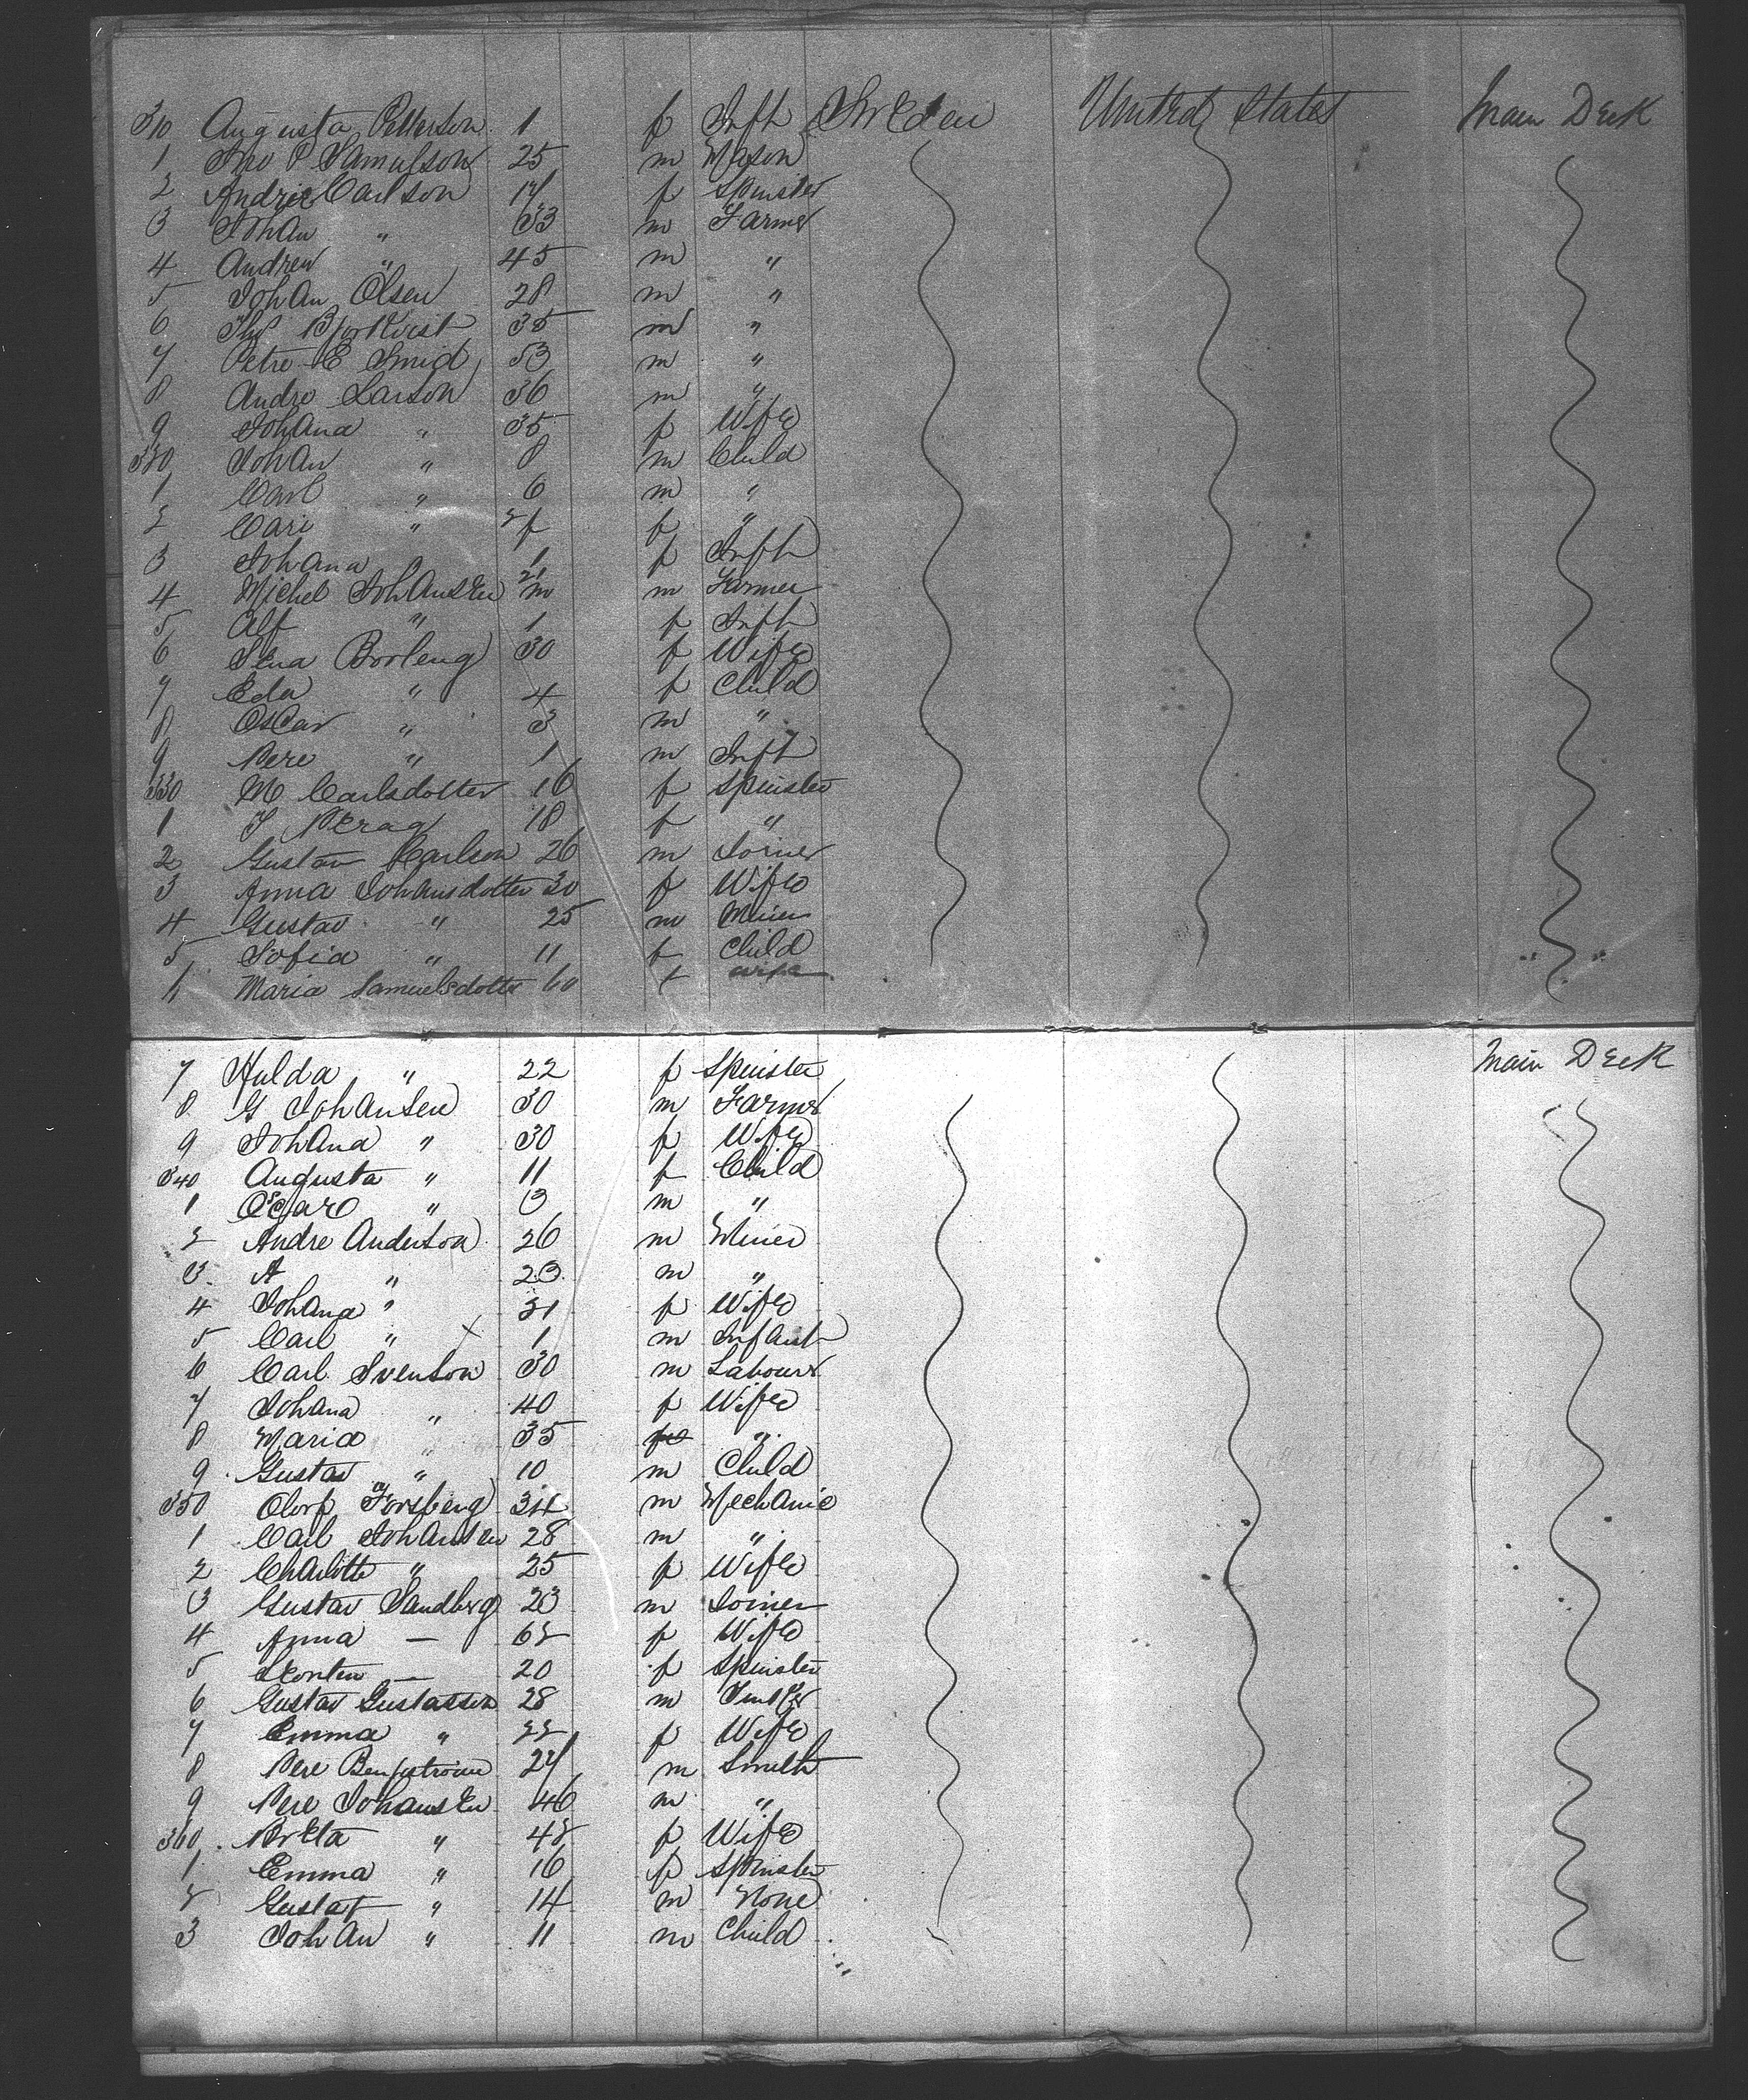 310 Augusta Petterson 1 f Inft Sweden United States Main Deck
1 Jno P Samulson 25 m Mason
2 Andrie Carlson 17 f Spinster
3 Johan " 33 m Farmer
4 Andrew " 45 m "
5 Johan Olsen 28 m "
6 35 m "
7 Petre E Smid 53 m "
8 Andre Larson 36 m "
9 Johana " 35 f Wife
320 Johan " 8 m Child
1 Carl " 6 m "
2 Cari " f "
3 Johana " 1 f Inft
4 Michel Johansen 21 m Farmer
5 Alf " 1 f Inft
6 30 f Wife
7 Eda " 4 f Child
8 Oscar " 3 m "
9 Pere " 1 m Inft
330 M Carlsdotter 16 f Spinster
1 18 f "
2 Gustav Carlson 26 m Joiner
3 Anna Johansdotter 30 f Wife
4 Gustav " 25 m Miner
5 Sofia " 11 f Child
6 Maria Samuelsdotter 60 f wife
7 Hulda " 22 f Spinster Main Deck
8 G Johansen 30 m Farmer
9 Johana " 30 f Wife
340 Augusta " 11 f Child
1 " 3 m "
2 Andre Anderson 26 m Miner
3 A " 23 m "
4 Johana " 21 f Wife
5 Carl " 1 m Infant
6 Carl Svenson 30 m Labourer
7 Johana " 40 f Wife
8 Maria " 35 "
9 Gustav " 10 m Child
350 Olorf Forsberg 34 m Mechanic
1 Carl Johansen 28 m "
2 Charlotte " 25 f Wife
3 Gustav Sandberg 23 m Joiner
4 Anna — 62 f Wife
5 — 20 f Spinster
6 Gustav Gustasson 28 m
7 Emma " 22 f Wife
8 Pere 27 m Smith
9 Pere Johansen 46 m "
360 Breta " 42 f Wife
1 Emma " 16 f Spinster
2 Gustaf " 14 m None
3 Johan " 11 m Child